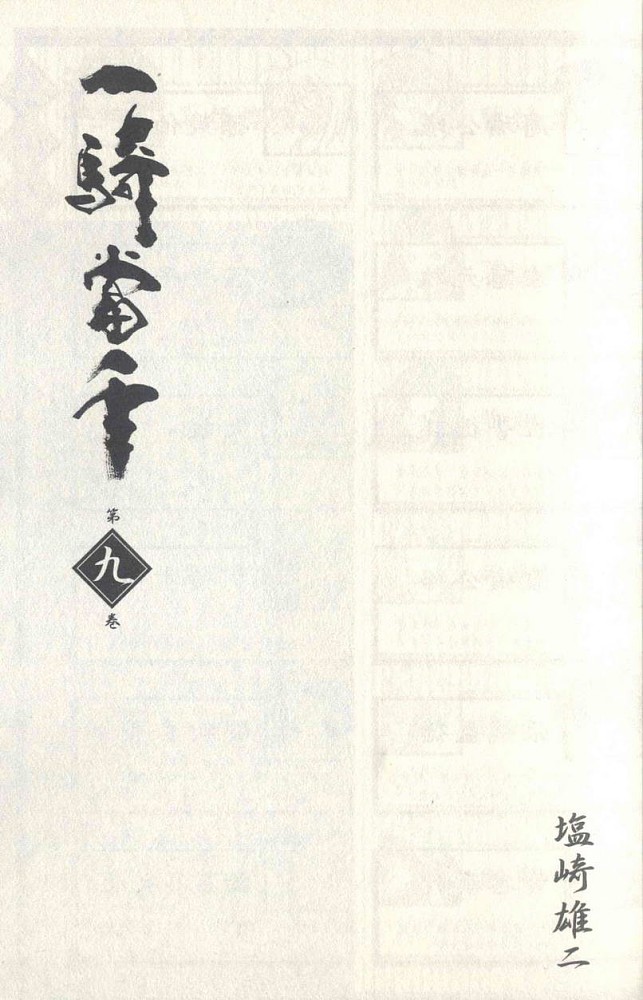 一騎當千
第九巻
塩崎雄二